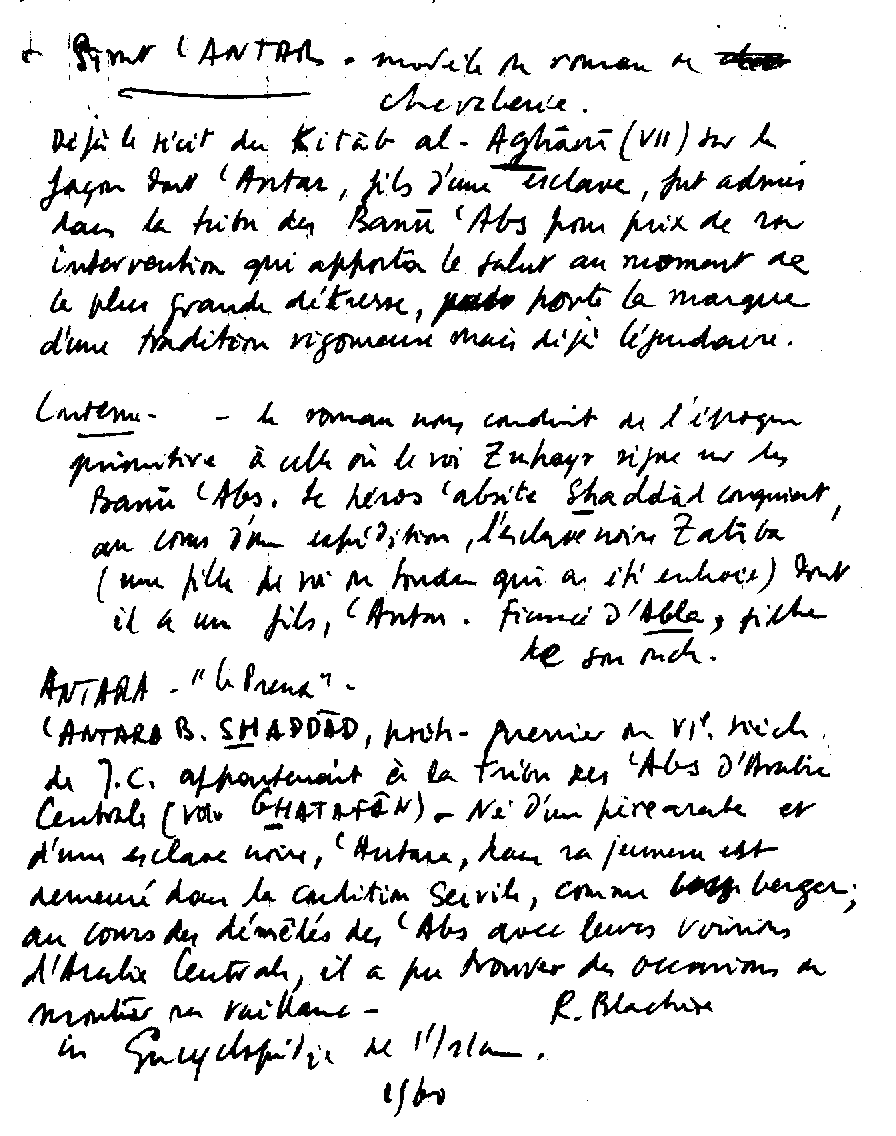 + Sīrat ʿANTAR - modèle du roman de
chevalerie.
Déjà le récit du Kitāb al-Aghānī (VII) sur la
façon dont ʿAntar, fils d'une esclave, fut admis
dans la tribu des Banū ʿAbs pour prix de son
intervention qui apporta le salut au moment de
la plus grande détresse, porte la marque
d'une tradition vigoureuse mais déjà légendaire.
Contenu - - le roman nous conduit de l'époque
primitive à celle où le roi Zuhayr règne sur les
Banū ʿAbs. Le héros ʿabsite Shaddād conquiert,
au cours d'une expédition, l'esclave noire Zabība
(une fille de roi du Soudan qui a été enlevée) dont
il a un fils, ʿAntar. Fiancé d'Abla, fille
de son oncle.
ANTARA - "le Preux" -
ʿANTARA B. SHADDĀD, poète-guerrier du VIe. siècle
de J.C. appartenant à la tribu des ʿAbs d'Arabie
Centrale (voir GHATAFĀN) - Né d'un père arabe et
d'une esclave noire, ʿAntara, dans sa jeunesse est
demeuré dans la condition servile, comme berger;
au cours des démêlés des ʿAbs avec leurs voisins
d'Arabie Centrale, il a pu trouver des occasions de
montrer sa vaillance -
R. Blachère
in Encyclopédie de l'Islam.
1960